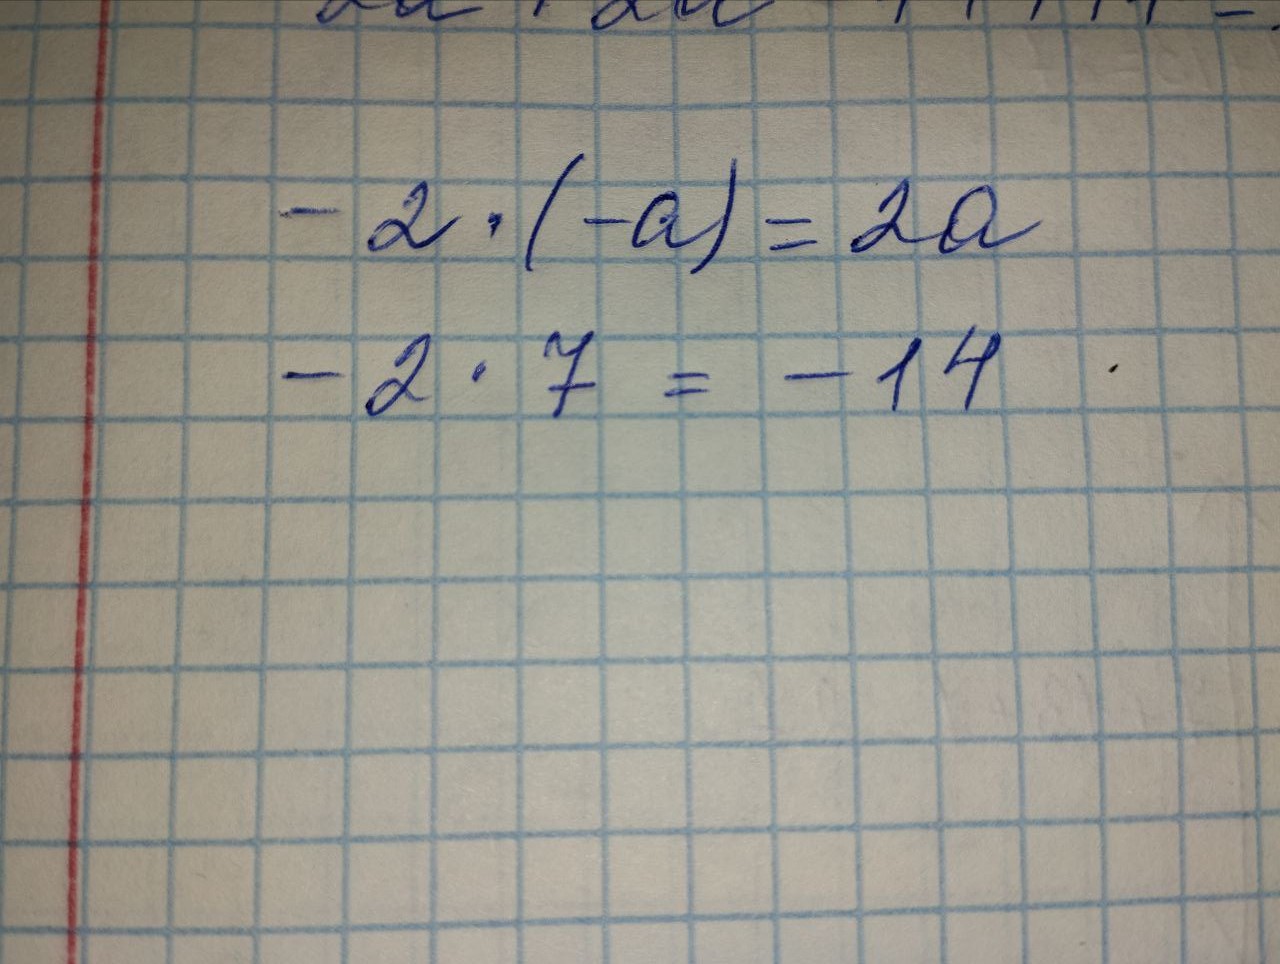 -2·(-a)=2a
-2·7=-14